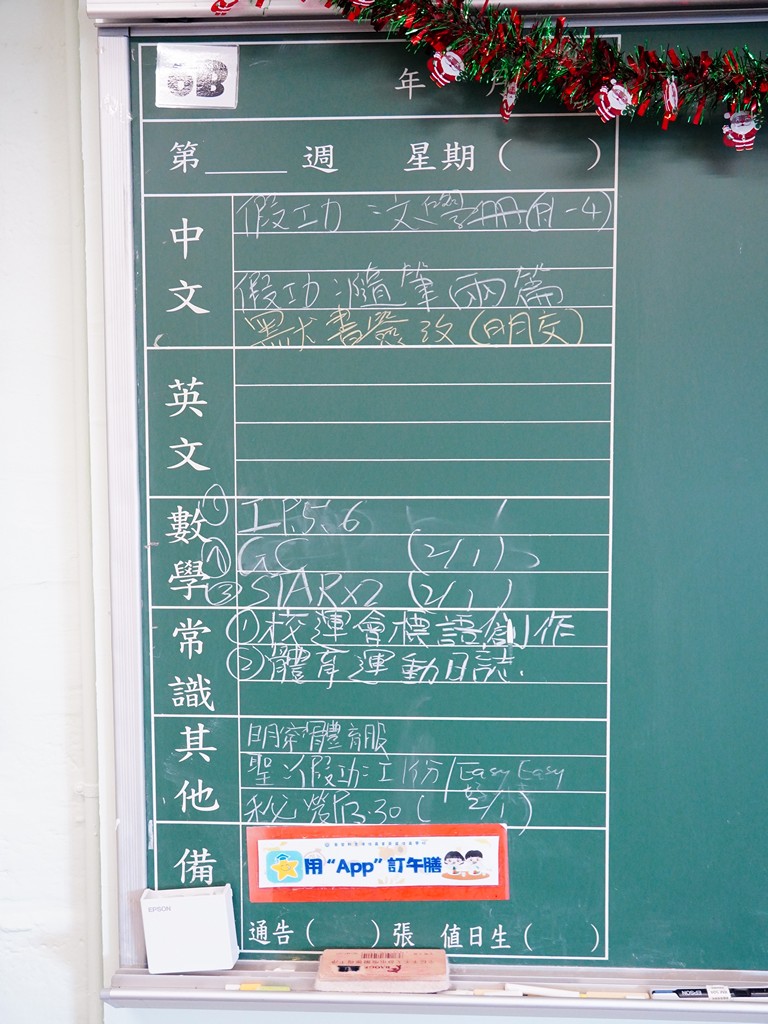 6B
年 月
第 週 星期 ( )
中文
假工力 文學冊(P1-4)
假功 隨筆兩篇
默書簽改(明交)
英文
數學
① 工P.5,6
GC (2/1)
③ STAR×2 (2/1)
常識
①校運會標語創作
②體育運動日誌
其他
明穿體育服
假功 1份/Easy Easy
3.30
備
用“App”訂午膳
通告( )張 值日生( )
EPSON
EPSON